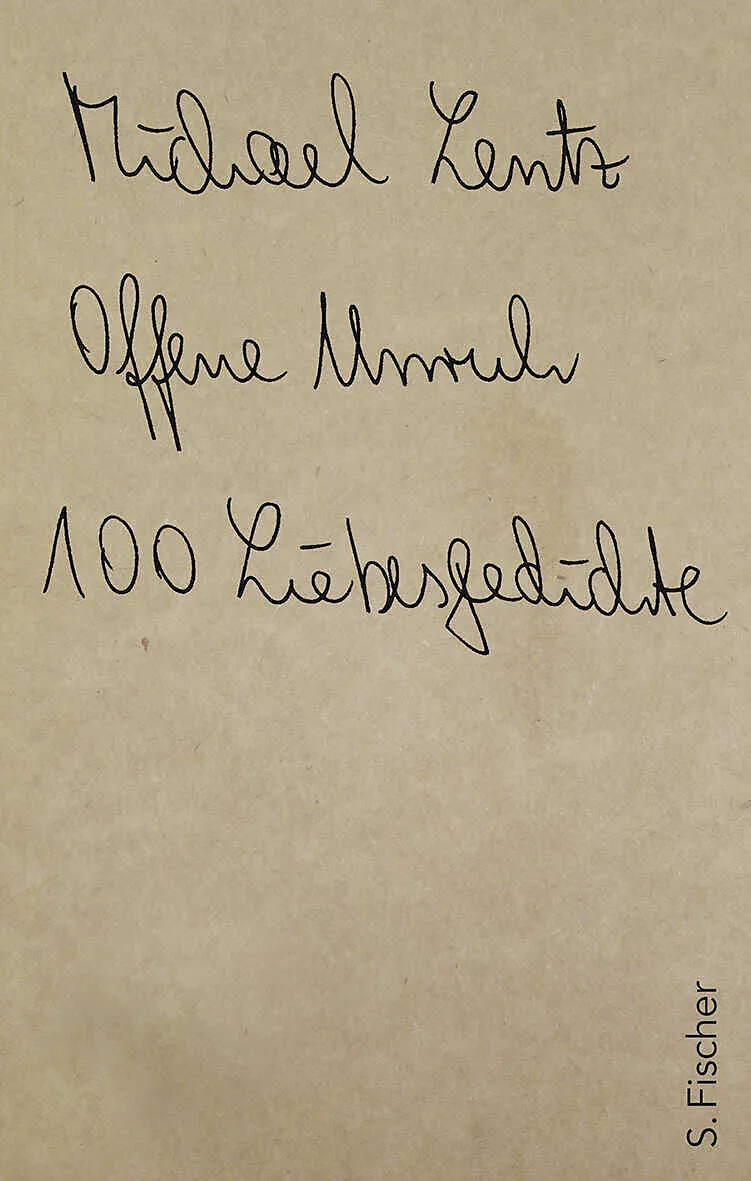 Michael Lentz
Offene Unruh
100 Liebesgedichte
S. Fischer